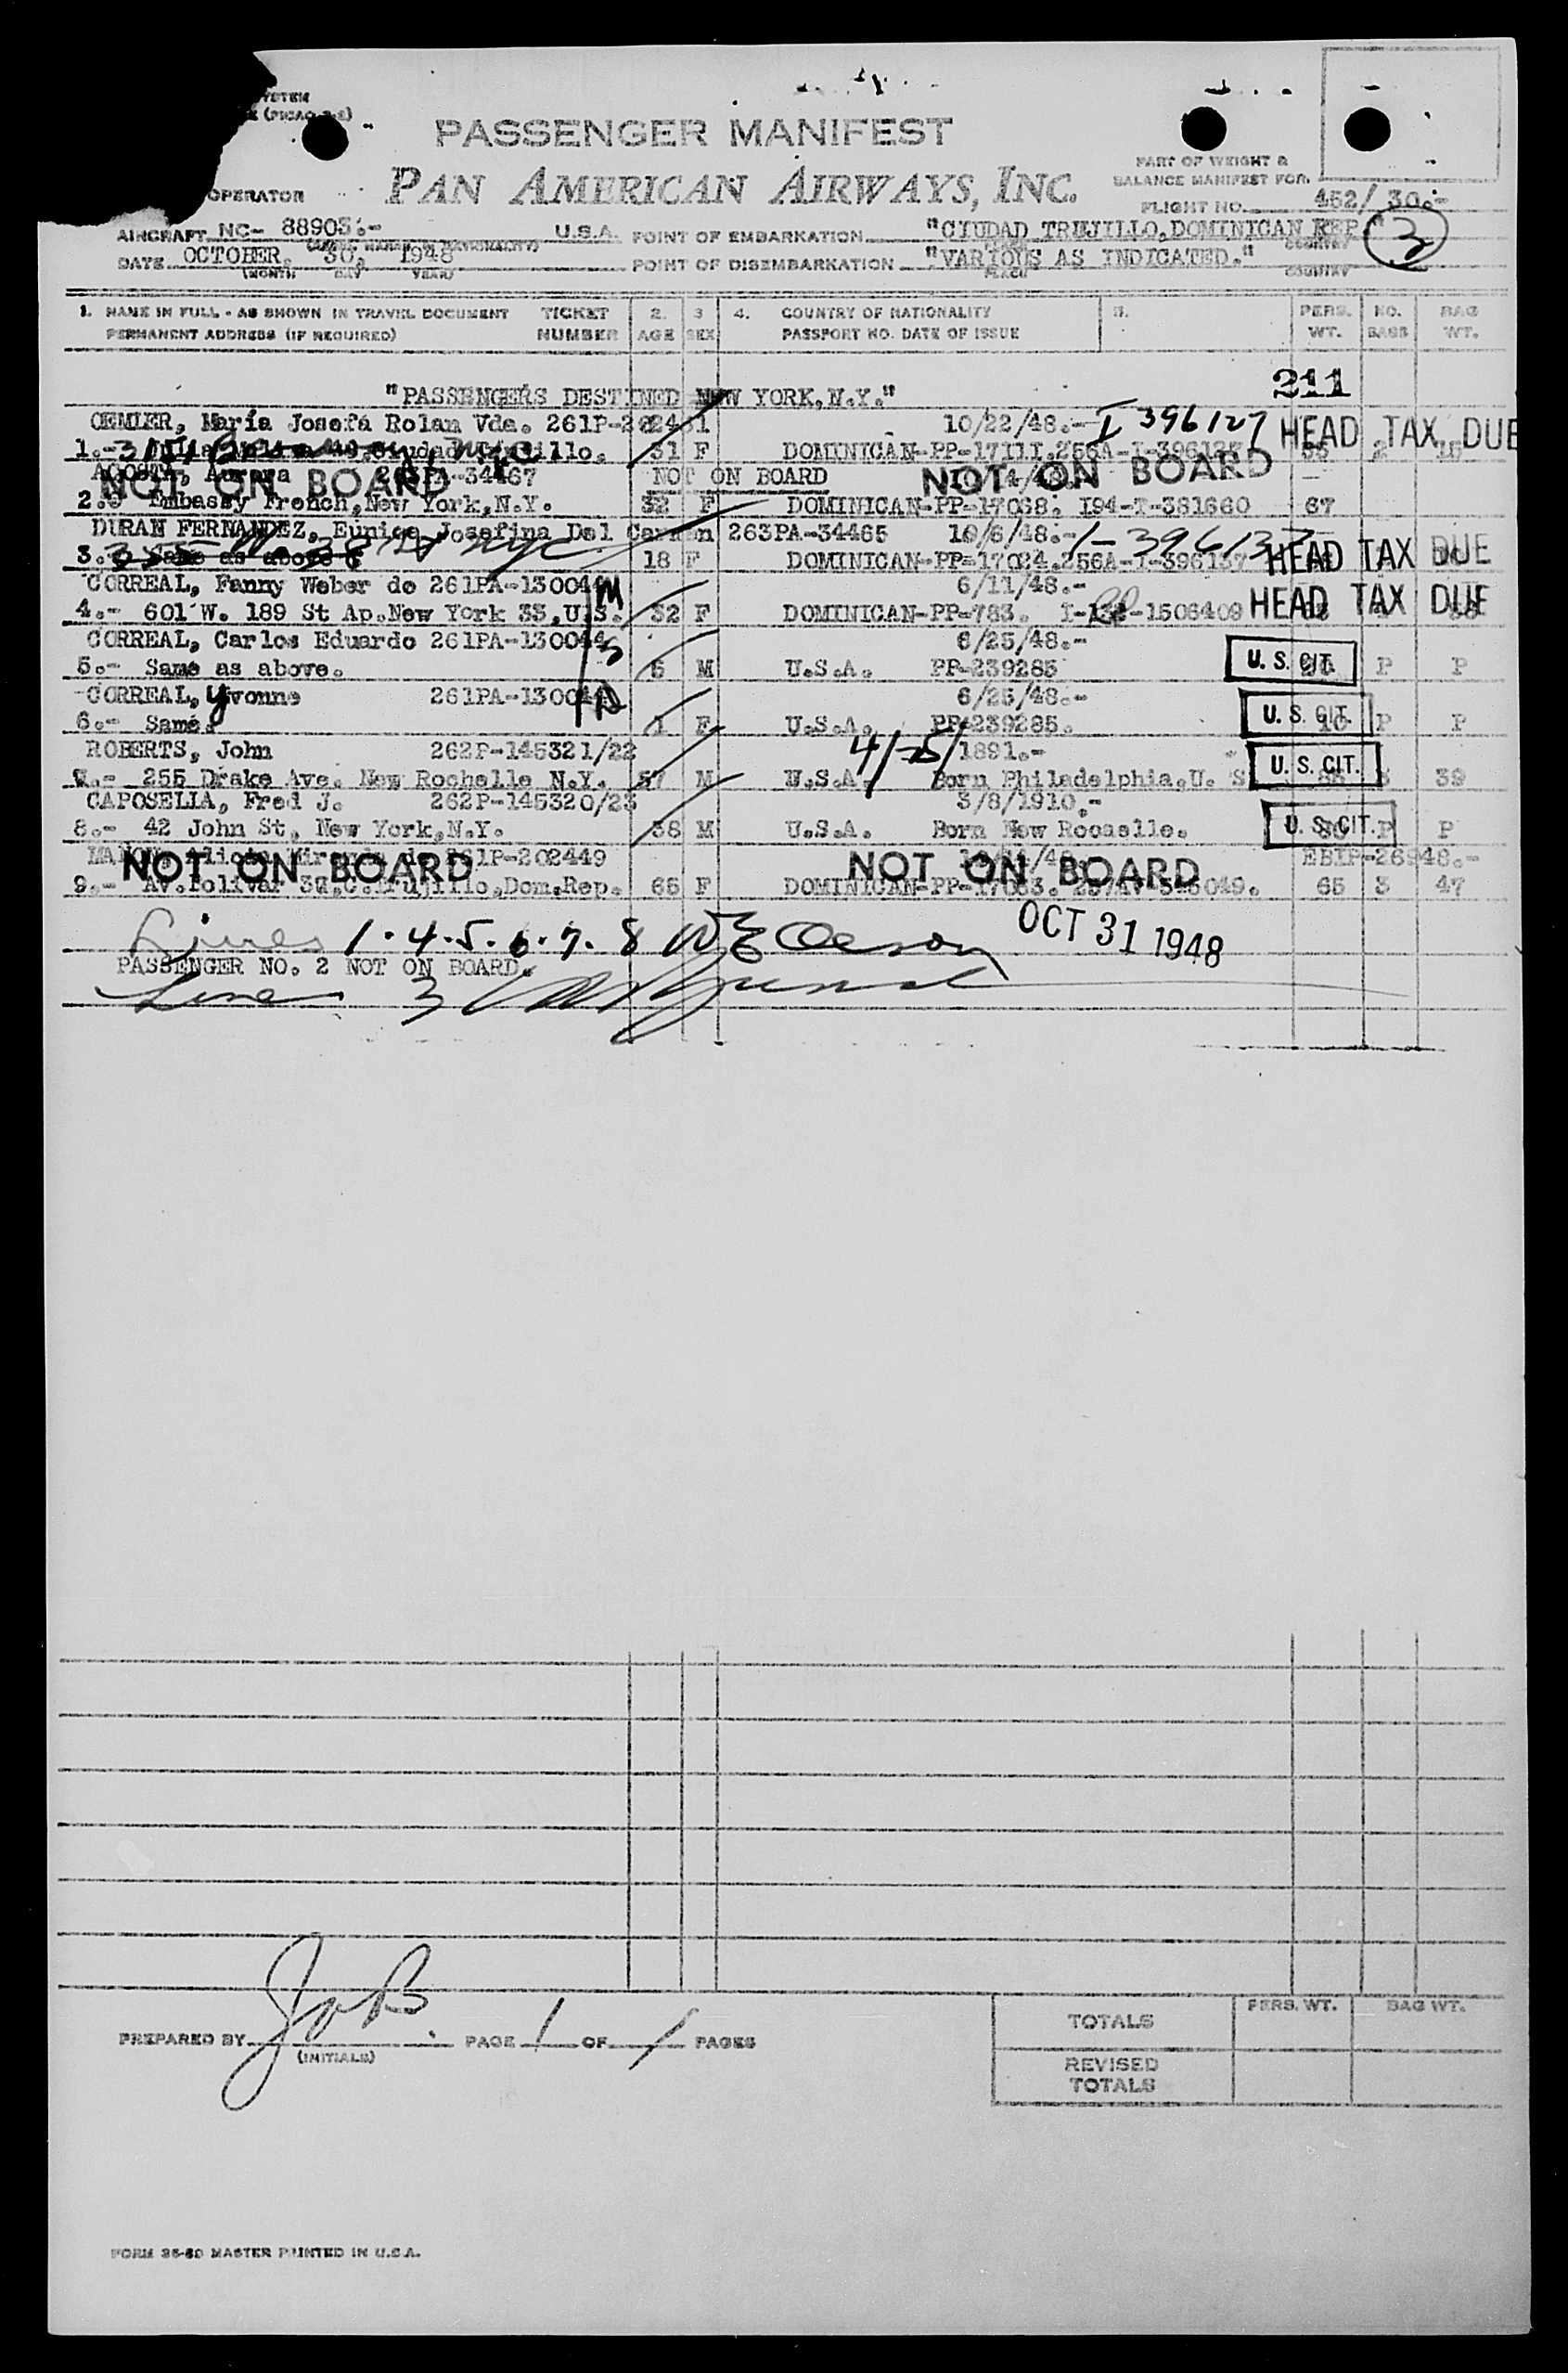 PASSENGER MANIFEST
PAN AMERICAN AIRWAYS, INC.
PART OF WEIGHT &
BALANCE MANIFEST FOR
OPERATOR
FLIGHT NO. 452/ 30.-
AIRCRAFT NC- 88903.- U.S.A. POINT OF EMBARKATION "CIUDAD TRUJILLO, DOMINICAN REP." 3
DATE OCTOBER 30, 1948 POINT OF DISEMBARKATION "VARIOUS AS INDICATED."
(MONTH DAY YEAR) PLACE COUNTRY
1. NAME IN FULL - AS SHOWN IN TRAVEL DOCUMENT TICKET 2. 3 4. COUNTRY OF NATIONALITY 5. PERS. NO. BAG
PERMANENT ADDRESS (IF REQUIRED) NUMBER AGE SEX PASSPORT NO. DATE OF ISSUE WT. BAGS WT.
211
"PASSENGERS DESTINED NEW YORK, N.Y."
OEMLER, María Josefa Rolan Vda. 261P- 10/22/48.- I 396127 HEAD TAX DUE
1.- 31 F DOMINICAN-PP-17111.256A-I-396127
Aurora -34467 NOT ON BOARD
NOT ON BOARD NOT ON BOARD
2.- Embassy French, New York, N.Y. 32 F DOMINICAN-PP-17068. I94-I-381660 67
DURAN FERNANDEZ, Eunice Josefina Del Carmen 263PA-34465 10/6/48.- I-396137
3.- Same as above 18 F DOMINICAN-PP-17024.256A-I-396137 HEAD TAX DUE
CORREAL, Fanny Weber de 261PA-130044 M 6/11/48.-
4.- 601 W. 189 St Ap. New York 33, U.S. 32 F DOMINICAN-PP-783. -1506409 HEAD TAX DUE
CORREAL, Carlos Eduardo 261PA-130044 S 6/25/48.-
5.- Same as above. 5 M U.S.A. PP-239285 U. S. CIT. P P
CORREAL, Yvonne 261PA-130044 D 6/25/48.-
6.- Same. 1 F U.S.A. PP-239285. U. S. CIT. 10 P P
ROBERTS, John 262P-145321/22 4/15/1891.-
7.- 255 Drake Ave. New Rochelle N.Y. 57 M U.S.A. Born Philadelphia, U. S U. S. CIT. 3 39
CAPOSELLA, Fred J. 262P-145320/23 3/8/1910.-
8.- 42 John St, New York, N.Y. 38 M U.S.A. Born New Rocaelle. U. S. CIT. P P
261P-202449 EBIP-26948.-
NOT ON BOARD NOT ON BOARD
9.- Av. Bolivar Trujillo, Dom. Rep. 65 F DOMINICAN-PP-17063. 65 3 47
Lines 1.4.5.6.7.8 OCT 31 1948
PASSENGER NO. 2 NOT ON BOARD.
Line 3
PREPARED BY JoB PAGE 1 OF 1 PAGES
(INITIALS)
PERS. WT. BAG WT.
TOTALS
REVISED
TOTALS
FORM 36-80 MASTER PRINTED IN U.S.A.